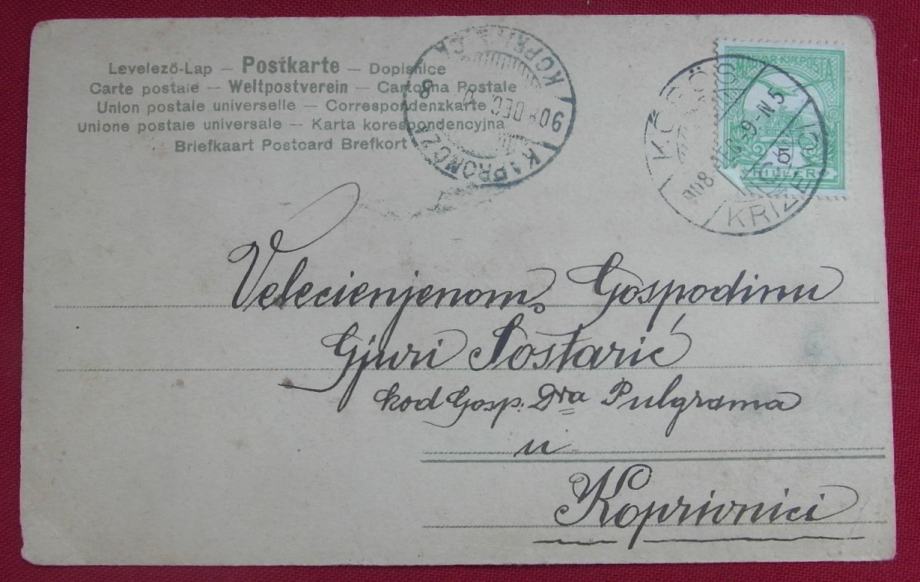 Levelező-Lap — Postkarte — Dopisnice
Carte postale — Weltpostverein — Cartolina Postale
Union postale universelle — Correspondenzkarte
Unione postale universale — Karta korespondencyjna
Briefkaart Postcard Brefkort
KAPRONCZA
908 DEC
8
KÖRÖS
908 DEC 9 N.5
KRIŽE
MAGYAR KIR POSTA
5
FILLÉR
Velecienjenom Gospodinu
Gjuri Šostarić
kod Gosp. Dra Pulgrama
u
Koprivnici